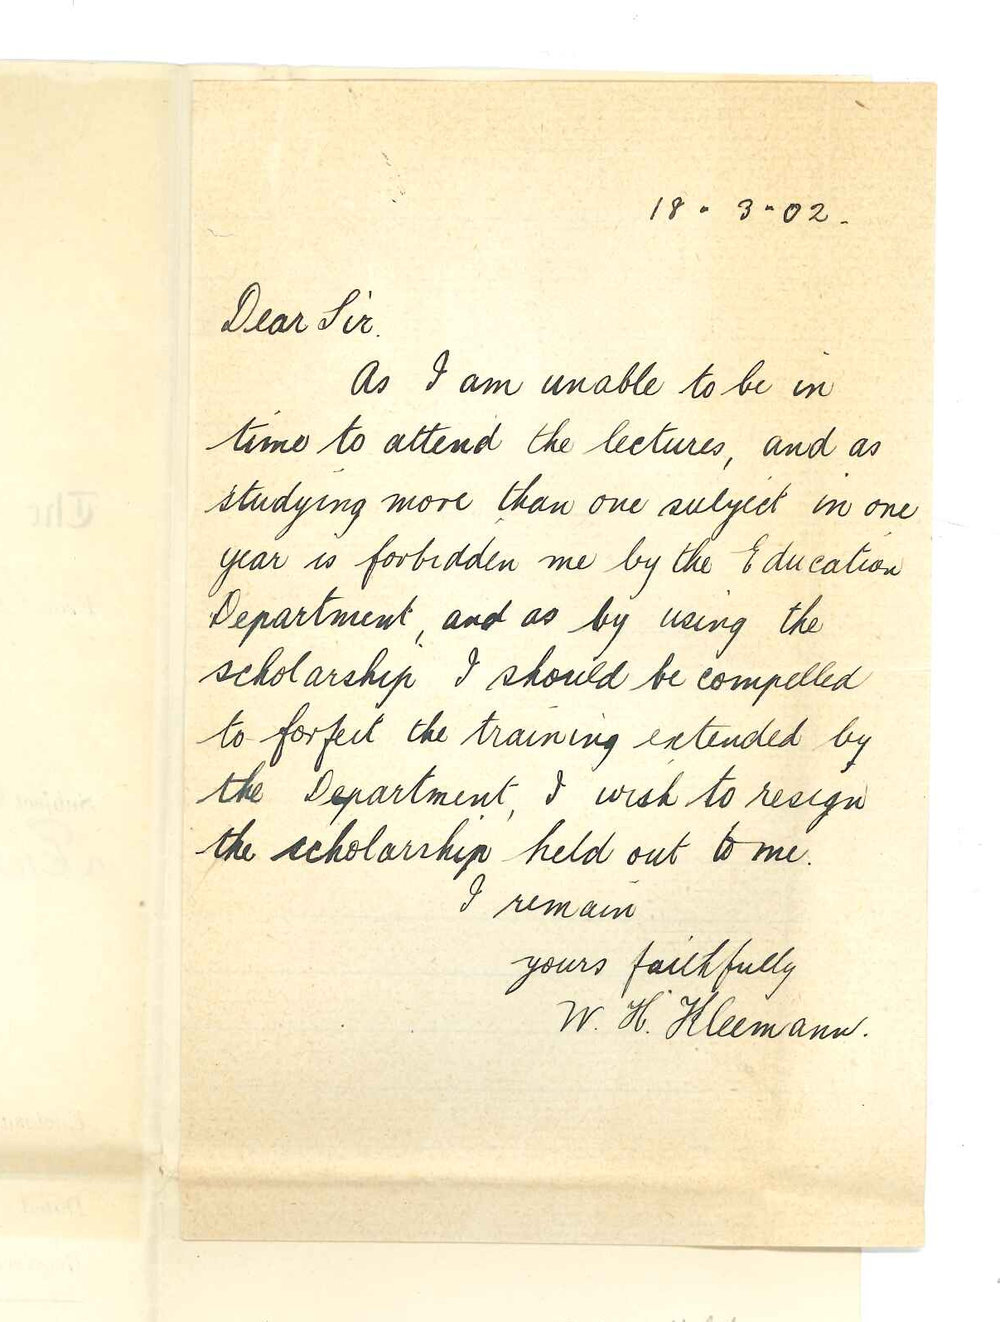 18 - 3 - 02.
Dear Sir.
As I am unable to be in
time to attend the lectures, and as
studying more than one subject in one
year is forbidden me by the Education
Department, and as by using the
scholarship I should be compelled
to forfeit the training extended by
the Department, I wish to resign
the scholarship held out to me.
I remain
yours faithfully
W. H. Kleemann.
The